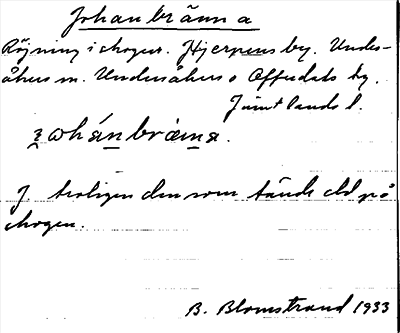 Johanbränna
Röjning i skogen. Hjerpens by. Unders-
åkers sn. Undersåkers o Offerdals tg.
Jämtlands l.
johánbræ̀na.
J troligen den som tände eld på
skogen.
B. Blomstrand 1933